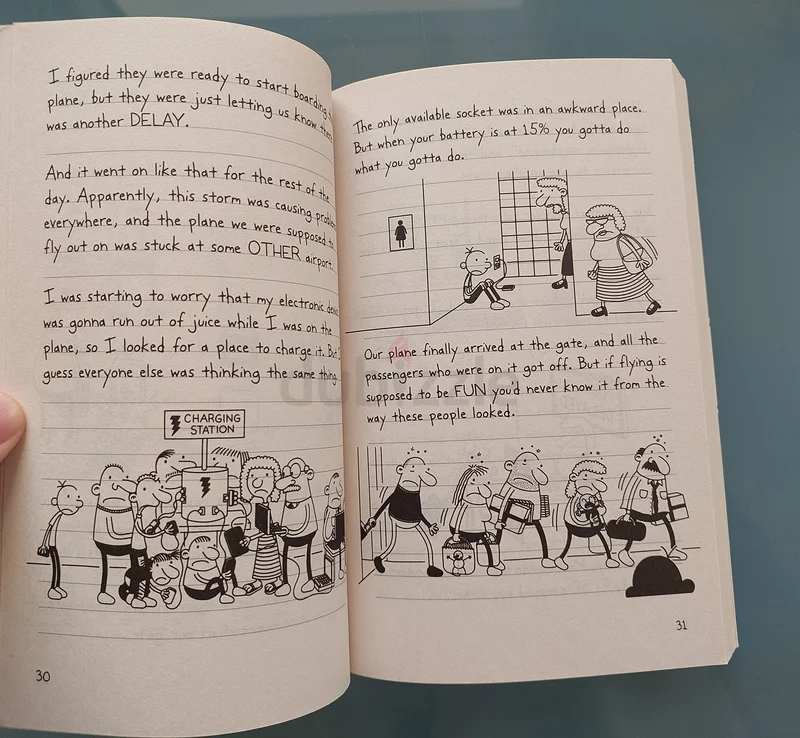 I figured they were ready to start boarding
plane, but they were just letting us know
was another DELAY.
And it went on like that for the rest of the
day. Apparently, this storm was causing
everywhere, and the plane we were supposed to
fly out on was stuck at some OTHER airport.
I was starting to worry that my electronic
was gonna run out of juice while I was on the
plane, so I looked for a place to charge it. But I
guess everyone else was thinking the same thing
CHARGING
STATION
30
The only available socket was in an awkward place.
But when your battery is at 15% you gotta do
what you gotta do.
Our plane finally arrived at the gate, and all the
passengers who were on it got off. But if flying is
supposed to be FUN you'd never know it from the
way these people looked.
31
dubizzle